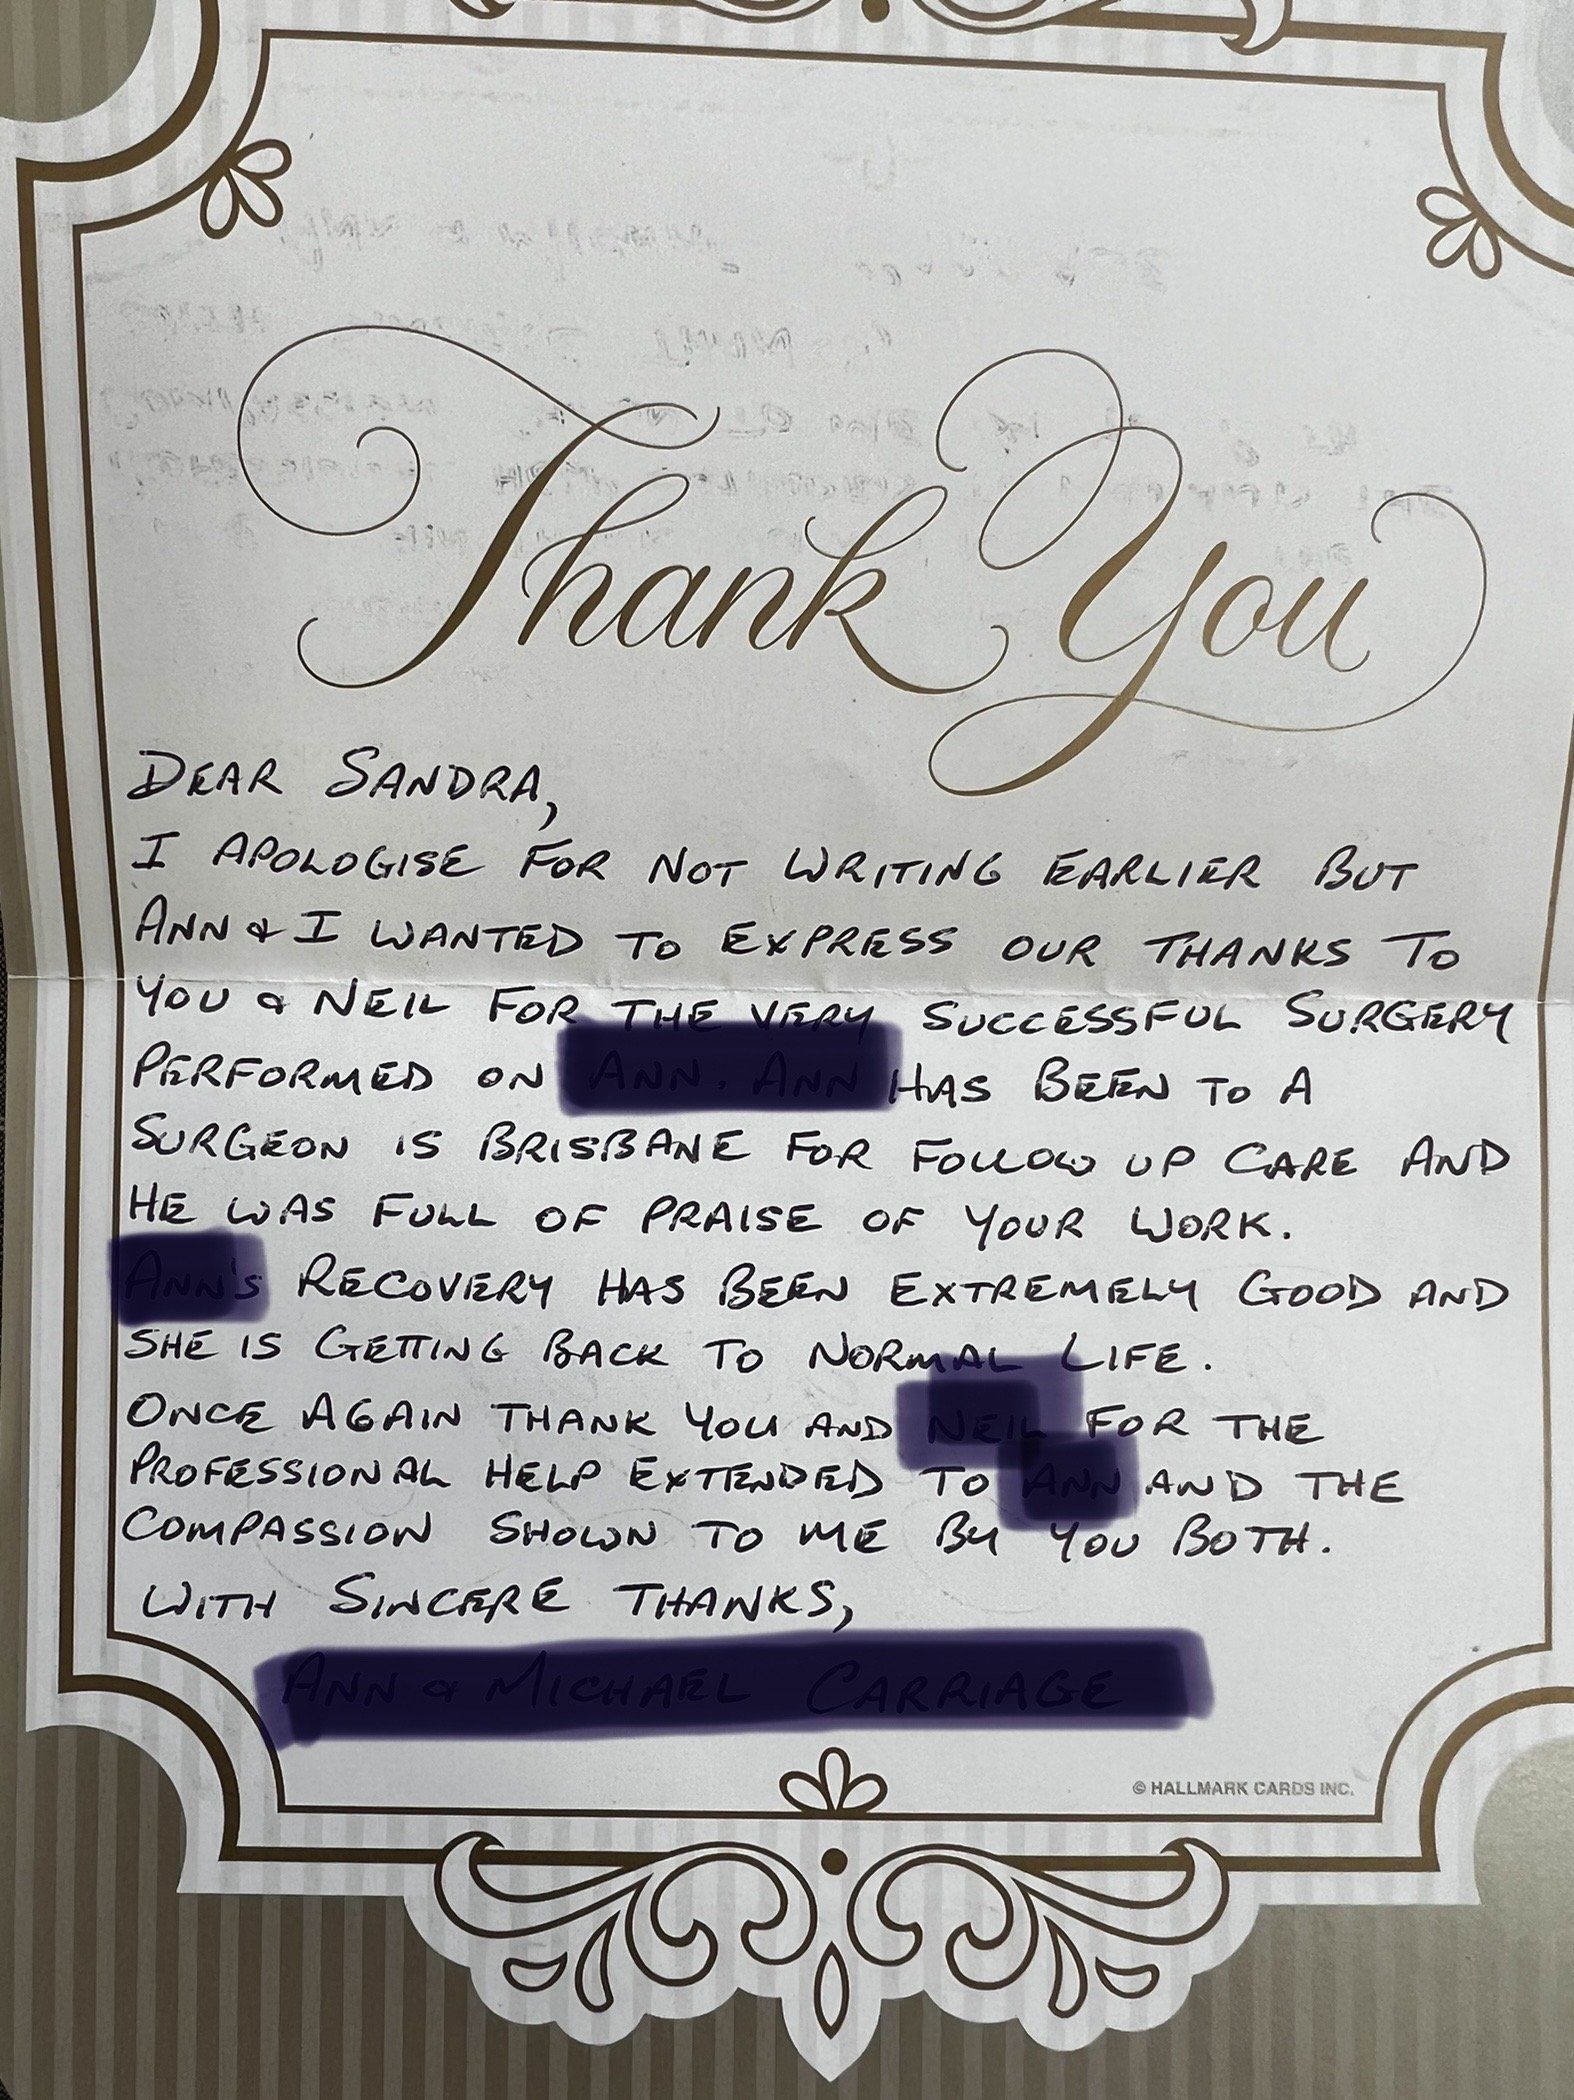 Thank You
DEAR SANDRA,
I APOLOGISE FOR NOT WRITING EARLIER BUT
ANN & I WANTED TO EXPRESS OUR THANKS TO
YOU & NEIL FOR THE VERY SUCCESSFUL SURGERY
PERFORMED ON HAS BEEN TO A
SURGEON IS BRISBANE FOR FOLLOW UP CARE AND
HE WAS FULL OF PRAISE OF YOUR WORK.
RECOVERY HAS BEEN EXTREMELY GOOD AND
SHE IS GETTING BACK TO NORMAL LIFE.
ONCE AGAIN THANK YOU AND FOR THE
PROFESSIONAL HELP EXTENDED TO AND THE
COMPASSION SHOWN TO ME BY YOU BOTH.
WITH SINCERE THANKS,
© HALLMARK CARDS INC.